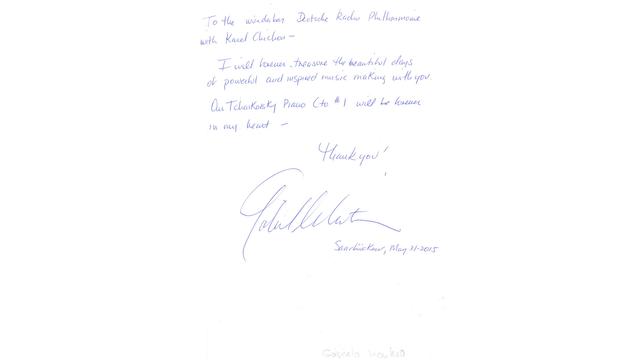 To the wonderful Deutsche Radio Philharmonie
with Karel Chichon –
I will forever treasure the beautiful days
of powerful and inspired music making with you.
Our Tchaikovsky Piano Cto #1 will be forever
in my heart –
Thank you!
Saarbrücken, May 31-2015
Gabriela Montero